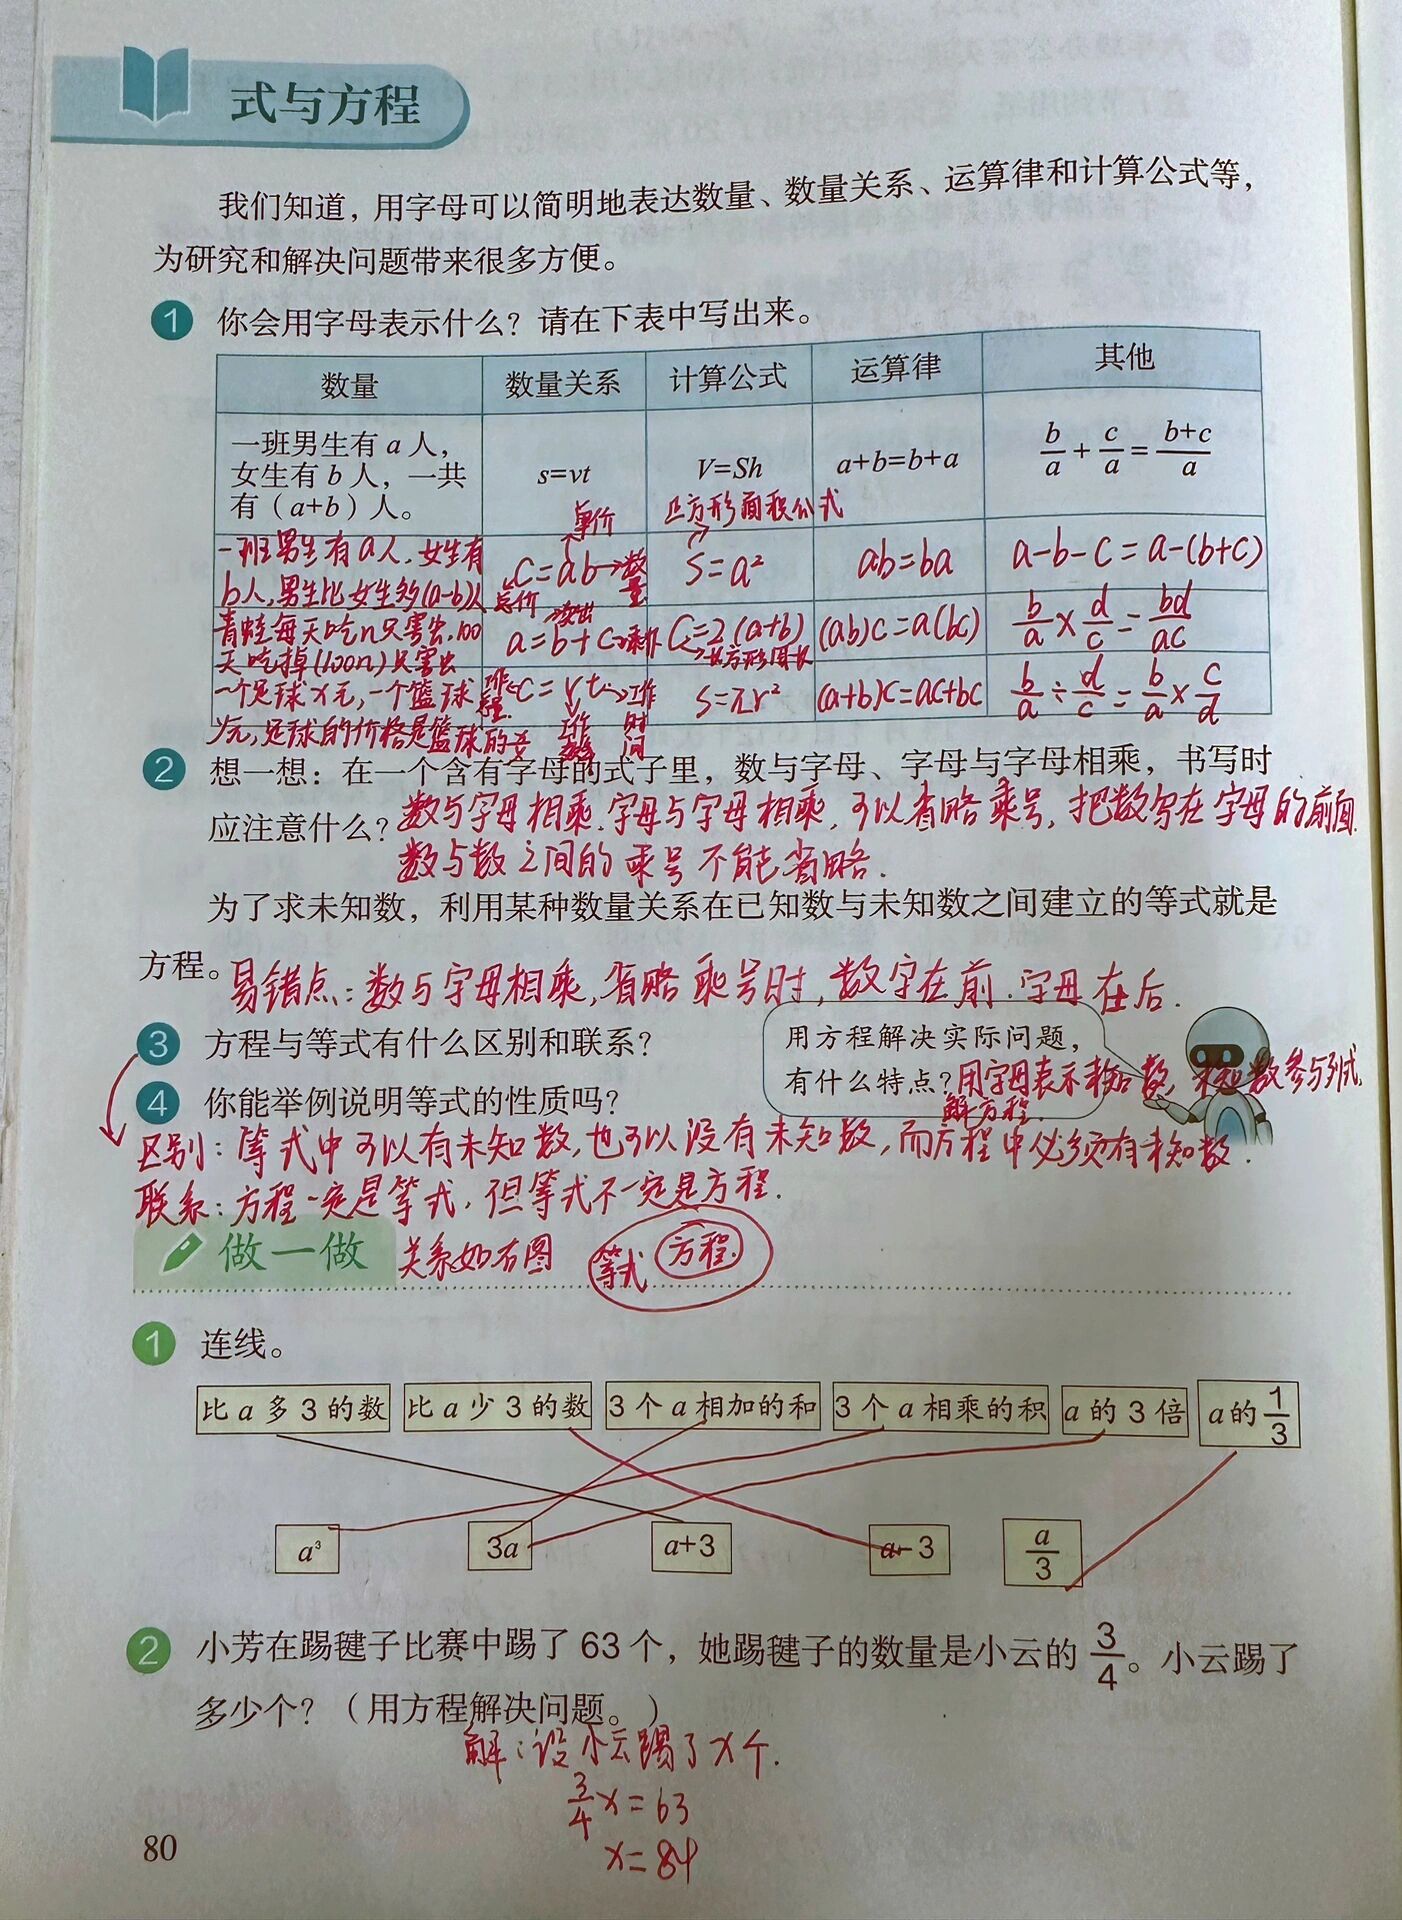 式与方程
我们知道，用字母可以简明地表达数量、数量关系、运算律和计算公式等，
为研究和解决问题带来很多方便。
1 你会用字母表示什么？请在下表中写出来。
数量 数量关系 计算公式 运算律 其他
一班男生有 a 人，
女生有 b 人，一共
有（a+b）人。
s=vt
V=Sh
a+b=b+a
b/a + c/a = (b+c)/a
单价
正方形面积公式
一班男生有a人，女生有
b人，男生比女生多(a-b)人
C=ab→数量
总价
S=a²
ab=ba
a-b-c=a-(b+c)
青蛙每天吃n只害虫，100
天吃掉(100n)只害虫
a=b+c
C=2(a+b)
长方形周长
(ab)c=a(bc)
b/a × d/c = bd/ac
一个足球x元，一个篮球
y元，足球的价格是篮球的
工作总量 C=vt→工作时间
工作
S=πr²
(a+b)c=ac+bc
b/a ÷ d/c = b/a × c/d
2 想一想：在一个含有字母的式子里，数与字母、字母与字母相乘，书写时
应注意什么？数与字母相乘.字母与字母相乘，可以省略乘号，把数写在字母的前面.
数与数之间的乘号不能省略.
为了求未知数，利用某种数量关系在已知数与未知数之间建立的等式就是
方程。易错点：数与字母相乘，省略乘号时，数字在前.字母在后.
3 方程与等式有什么区别和联系？
用方程解决实际问题，
有什么特点？用字母表示未知数，未知数参与列式，
解方程.
4 你能举例说明等式的性质吗？
区别：等式中可以有未知数，也可以没有未知数，而方程中必须有未知数.
联系：方程一定是等式，但等式不一定是方程.
做一做 关系如右图 等式 方程.
1 连线。
比 a 多 3 的数 比 a 少 3 的数 3 个 a 相加的和 3 个 a 相乘的积 a 的 3 倍 a 的 1/3
a³ 3a a+3 a-3 a/3
2 小芳在踢毽子比赛中踢了 63 个，她踢毽子的数量是小云的 3/4。小云踢了
多少个？（用方程解决问题。）
解：设小云踢了x个.
3/4 x=63
x=84
80